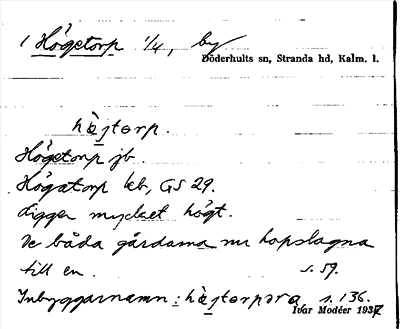 1 Högetorp 1/4, by
Döderhults sn, Stranda hd, Kalm. l.
hö̀jtorp.
Högetorp jb.
Högatorp kb, GS 29.
Ligger mycket högt.
De båda gårdarna nu hopslagna
till en. s. 59.
Inbyggarnamn: hö̀jtorpara s. 136.
Ivar Modéer 1937